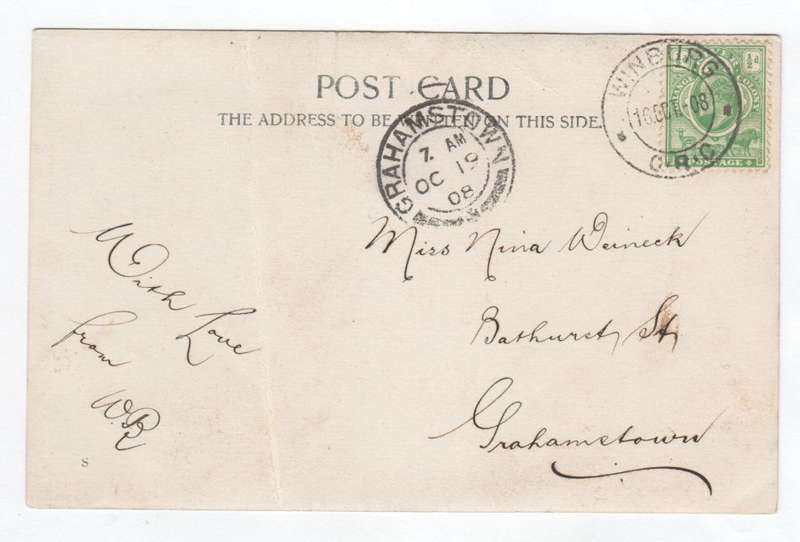 POST CARD
THE ADDRESS TO BE WRITTEN ON THIS SIDE.
WINBURG
O.R.C.
½d
POSTAGE
GRAHAMSTOWN
7. AM
OC 19
08
Miss Nina Weineck
Bathurst St
Grahamstown
With Love
from
W.R
S